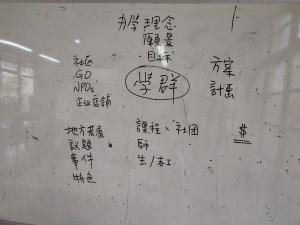 办学理念
願景
目标
社区
GO
NPOs
企业店舖
學群
方案
計畫
地方發展
議題
事件
特色
課程、社团
師
生/
$